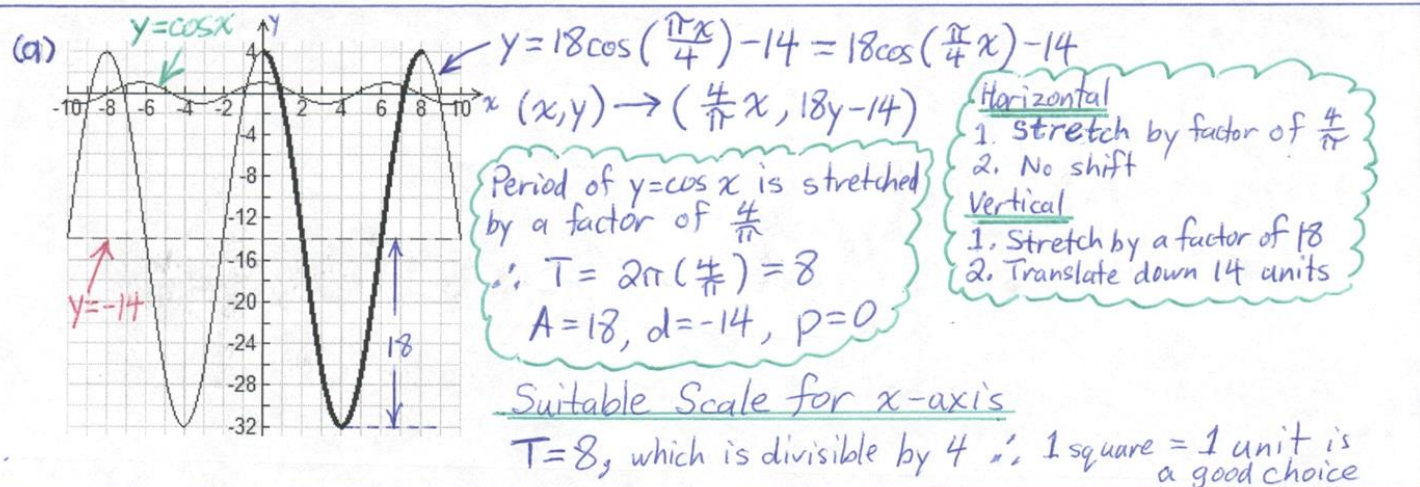 (a)
y=cosx
y
y=18cos(πx/4)-14=18cos(π/4 x)-14
4
-10 -8 -6 -4 -2 2 4 6 8 10 x
-4
-8
-12
-16
-20
-24
-28
-32
y=-14
18
(x,y)→(4/π x, 18y-14)
Period of y=cos x is stretched
by a factor of 4/π
∴ T= 2π(4/π)=8
A=18, d=-14, p=0
Horizontal
1. Stretch by factor of 4/π
2. No shift
Vertical
1. Stretch by a factor of 18
2. Translate down 14 units
Suitable Scale for x-axis
T=8, which is divisible by 4 ∴ 1 square = 1 unit is
a good choice